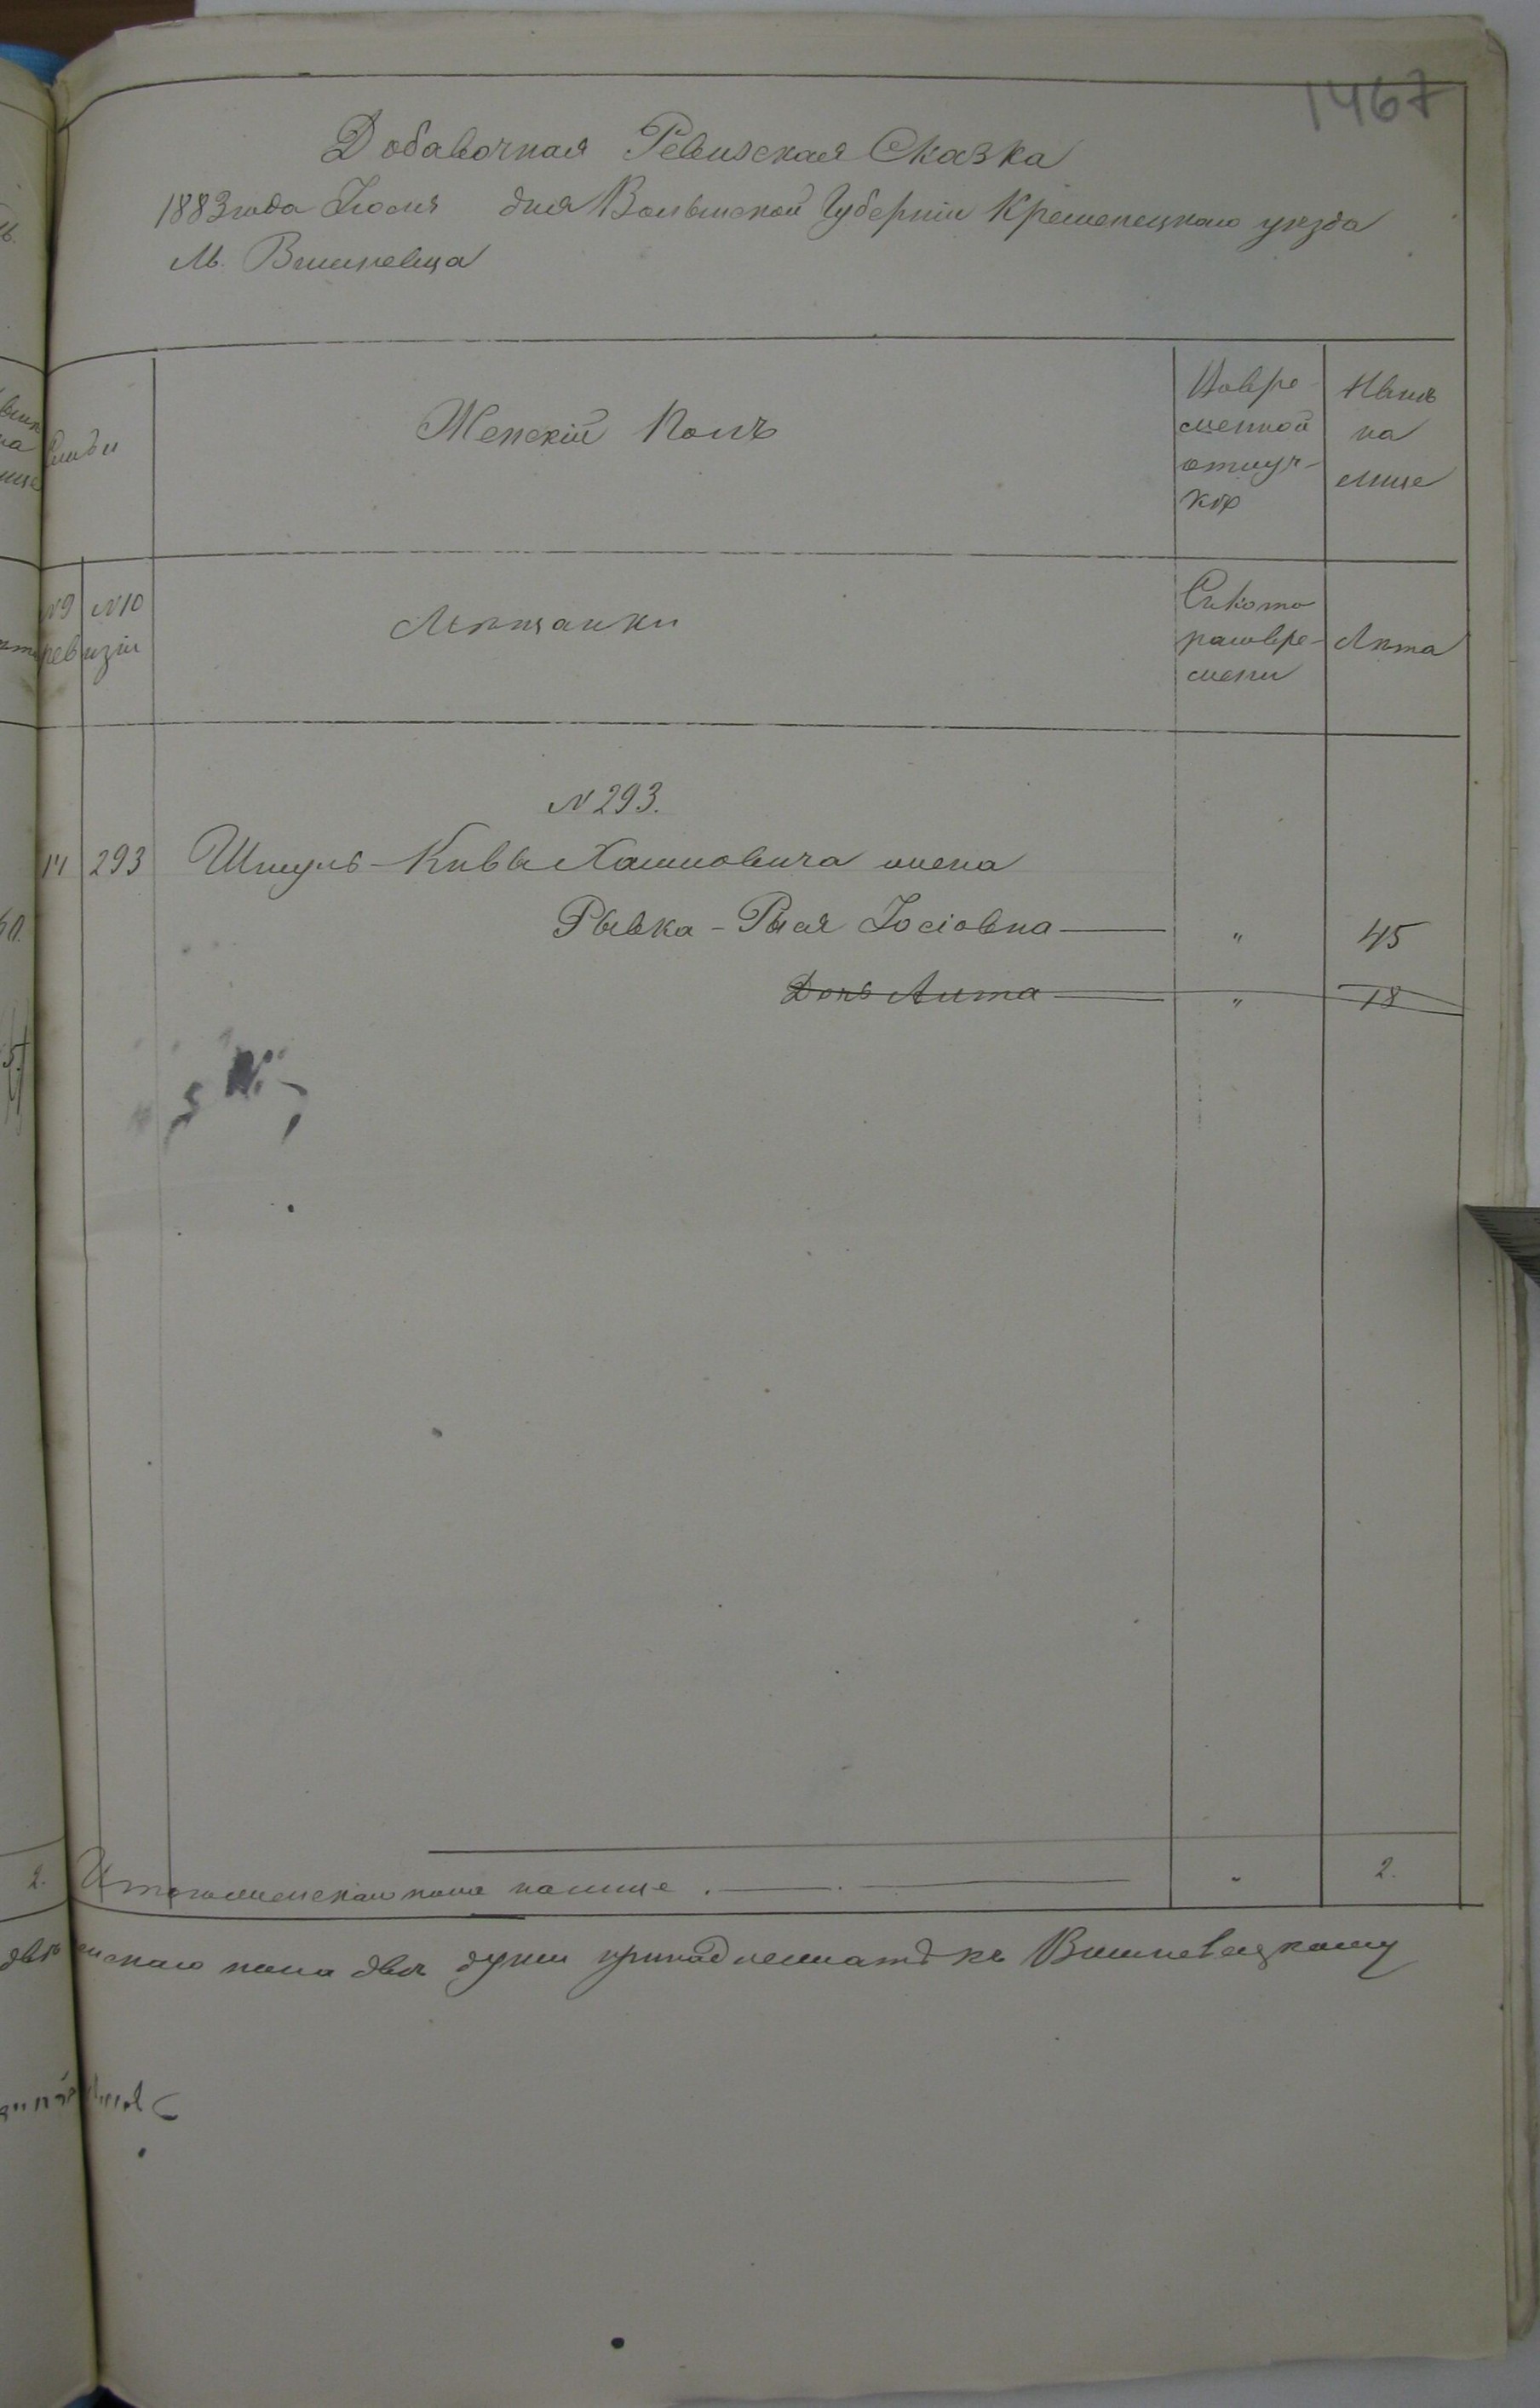 1467
Добавочная Ревизская Сказка
1883 года Іюля дня Волынской Губерніи Кременецкаго уѣзда
М. Вишневца
Женскій Полъ
Вовре-
менной
отлуч-
кѣ
Нынѣ
на
лице
№9 №10
ревизіи
Мѣщанки
Съ кото
раго вре-
мени
Лѣта
№ 293.
14 293 Шмуль-Кивы Хаимовича жена
Рывка-Рыся Іосіовна — " 45
Дочь Антa — " 18
Итого женскаго пола налице . — . — " 2.
женскаго пола двѣ души принадлежатъ къ Вишневецкому